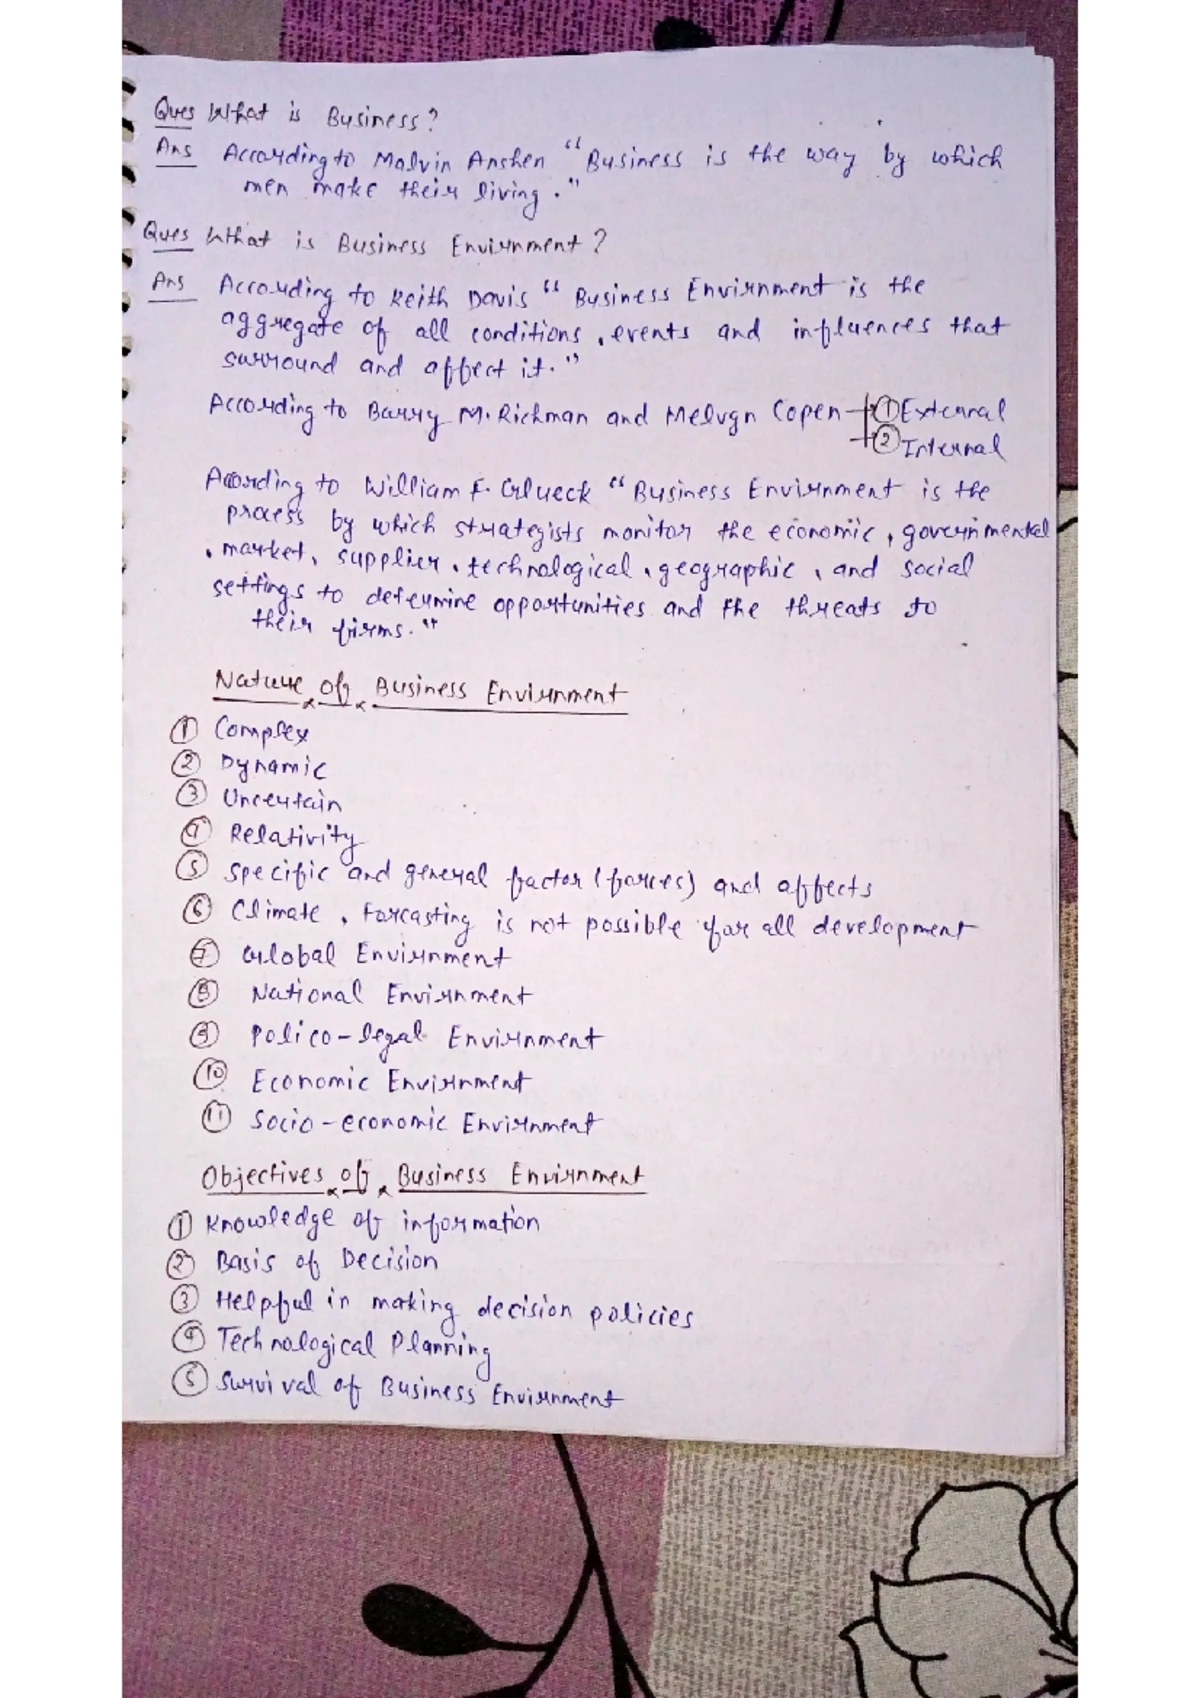 Ques What is Business?
Ans According to Malvin Anshen "Business is the way by which
men make their living."
Ques What is Business Envirnment?
Ans According to Keith Davis "Business Envirnment is the
aggregate of all conditions, events and influences that
surround and affect it."
According to Barry M. Richman and Melvgn Copen ① External
② Internal
According to William F. Glueck "Business Envirnment is the
process by which strategists monitor the economic, governmental
, market, supplier, technological, geographic, and social
settings to determine opportunities and the threats to
their firms."
Nature of Business Envirnment
① Complex
② Dynamic
③ Uncertain
④ Relativity
⑤ Specific and general factor (forces) and affects
⑥ Climate, Forcasting is not possible for all development
⑦ Global Envirnment
⑧ National Envirnment
⑨ Polico-legal Envirnment
⑩ Economic Envirnment
⑪ Socio-economic Envirnment
Objectives of Business Envirnment
① Knowledge of information
② Basis of Decision
③ Helpful in making decision policies
④ Technological Planning
⑤ Survival of Business Envirnment